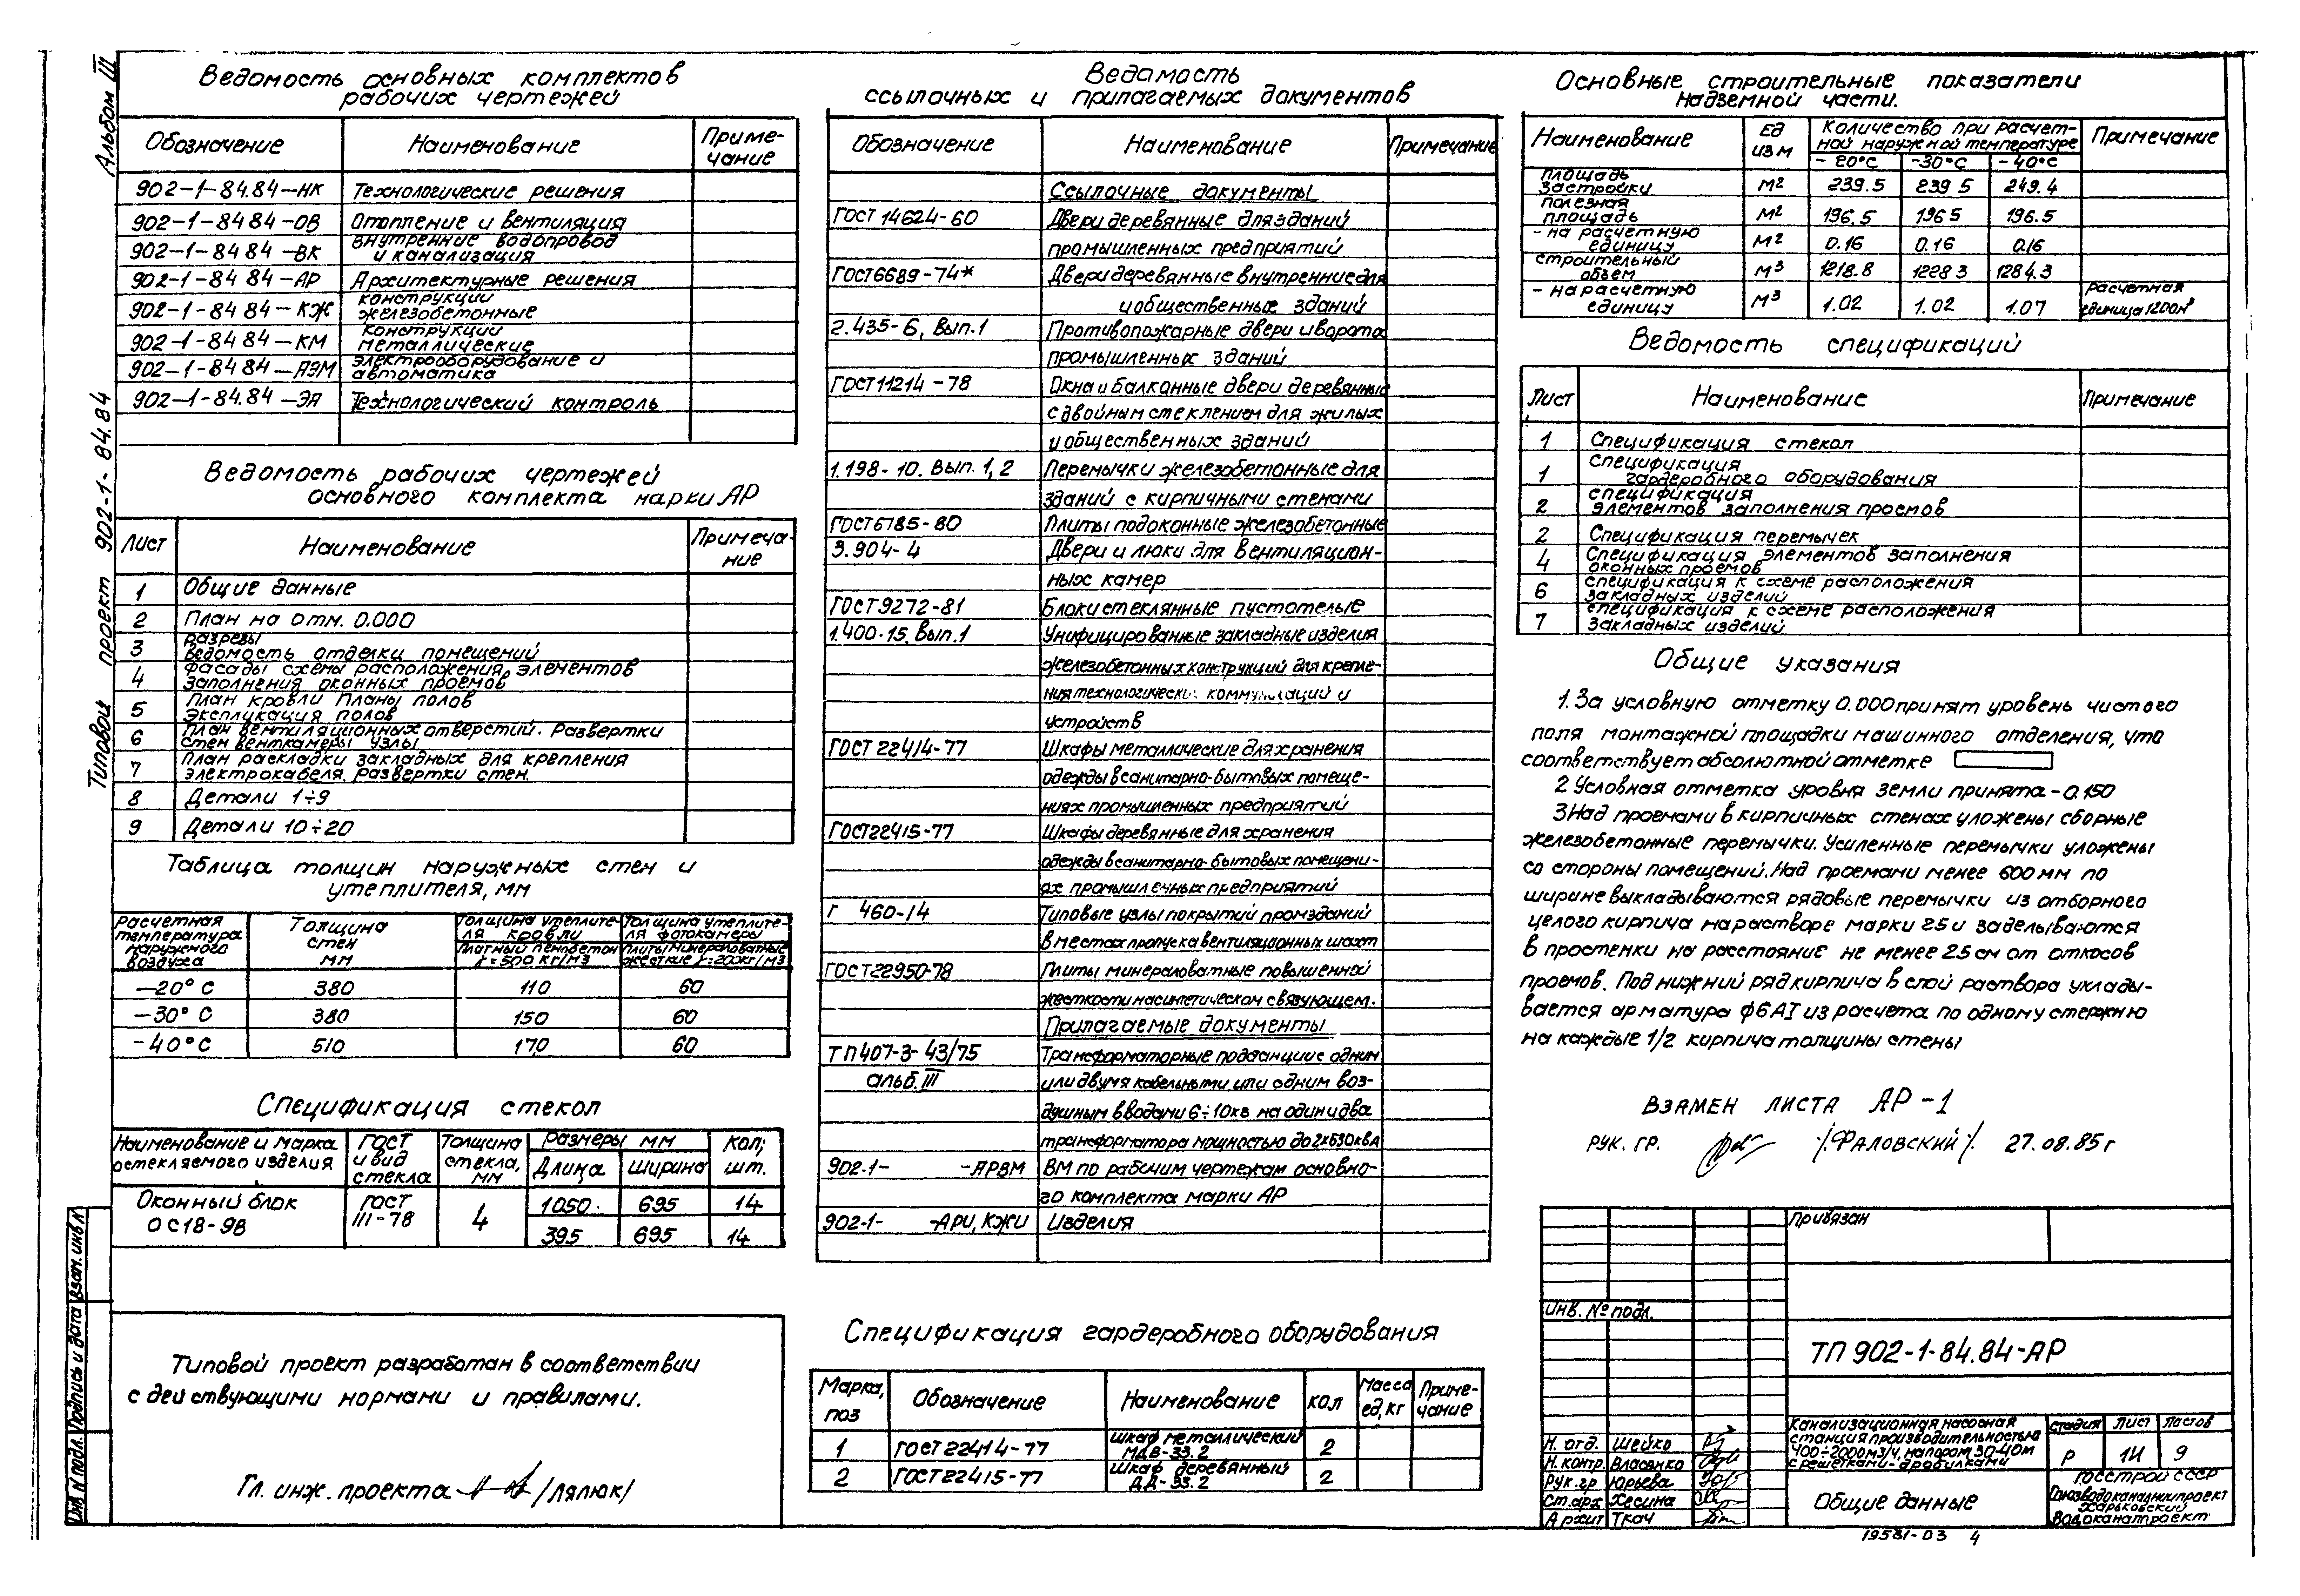 Альбом III
Типовой проект 902-1-84.84
Ведомость основных комплектов
рабочих чертежей
Обозначение Наименование Приме-
чание
902-1-84.84-НК Технологические решения
902-1-84 84-ОВ Отопление и вентиляция
902-1-84 84-ВК Внутренние водопровод
и канализация
902-1-84 84-АР Архитектурные решения
902-1-84 84-КЖ Конструкции
железобетонные
902-1-84 84-КМ Конструкции
металлические
902-1-84 84-АЭМ Электрооборудование и
автоматика
902-1-84.84-ЭА Технологический контроль
Ведомость рабочих чертежей
основного комплекта марки АР
Лист Наименование Примеча-
ние
1 Общие данные
2 План на отм. 0.000
3 Разрезы
Ведомость отделки помещений
4 Фасады схемы расположения элементов
заполнения оконных проемов
5 План кровли Планы полов
Экспликация полов
6 План вентиляционных отверстий. Развертки
стен венткамеры Узлы
7 План раскладки закладных для крепления
электрокабеля. Развертки стен.
8 Детали 1÷9
9 Детали 10÷20
Таблица толщин наружных стен и
утеплителя, мм
Расчетная
температура
наружного
воздуха
Толщина
стен
мм
Толщина утеплите-
ля кровли
Плитный пенобетон
γ=500 кг/м3
Толщина утеплите-
ля фотокамеры
Плиты минераловатные
жесткие γ=200кг/м3
-20° С 380 110 60
-30° С 380 150 60
-40° С 510 170 60
Спецификация стекол
Наименование и марка
остекляемого изделия
ГОСТ
и вид
стекла
Толщина
стекла,
мм
Размеры мм
Длина Ширина
Кол;
шт.
Оконный блок
ОС18-9В
ГОСТ
111-78
4
1050 695 14
395 695 14
Типовой проект разработан в соответствии
с действующими нормами и правилами.
Гл. инж. проекта /Лялюк/
Инв N подл. Подпись и дата Взам. инв N
Ведомость
ссылочных и прилагаемых документов
Обозначение Наименование Примечание
Ссылочные документы
ГОСТ 14624-60 Двери деревянные для зданий
промышленных предприятий
ГОСТ6689-74* Двери деревянные внутренние для
и общественных зданий
2.435-6, Вып.1 Противопожарные двери и ворота
промышленных зданий
ГОСТ11214-78 Окна и балконные двери деревянные
с двойным стеклением для жилых
и общественных зданий
1.198-10. Вып. 1, 2 Перемычки железобетонные для
зданий с кирпичными стенами
ГОСТ6785-80 Плиты подоконные железобетонные
3.904-4 Двери и люки для вентиляцион-
ных камер
ГОСТ9272-81 Блоки стеклянные пустотелые
1.400-15. Вып.1 Унифицированные закладные изделия
железобетонных конструкций для крепле-
ния технологических коммуникаций и
устройств
ГОСТ 22414-77 Шкафы металлические для хранения
одежды в санитарно-бытовых помеще-
ниях промышленных предприятий
ГОСТ22415-77 Шкафы деревянные для хранения
одежды в санитарно-бытовых помещени-
ях промышленных предприятий
Г 460-14 Типовые узлы покрытий промзданий
в местах пропуска вентиляционных шахт
ГОСТ22950-78 Плиты минераловатные повышенной
жесткости на синтетическом связующем.
Прилагаемые документы
ТП407-3-43/75 Трансформаторные подстанции с одним
альб. III или двумя кабельными или одним воз-
душным вводами 6÷10кв на один и два
трансформатора мощностью до 2х630кВА
902-1- -АРВМ ВМ по рабочим чертежам основно-
го комплекта марки АР
902-1- -АРИ, КЖИ Изделия
Спецификация гардеробного оборудования
Марка,
поз
Обозначение Наименование Кол Масса
ед, кг
Приме-
чание
1 ГОСТ22414-77 Шкаф металлический
МДВ-33.2 2
2 ГОСТ22415-77 Шкаф деревянный
ДД-33.2 2
Основные строительные показатели
надземной части.
Наименование Ед
изм
Количество при расчет-
ной наружной температуре
-20°С -30°С -40°С
Примечание
Площадь
застройки м2 239.5 239 5 249.4
Полезная
площадь м2 196.5 196 5 196.5
- на расчетную
единицу м2 0.16 0.16 0.16
Строительный
объем м3 1218.8 1228 3 1284.3
- на расчетную
единицу м3 1.02 1.02 1.07 Расчетная
единица 1200м³
Ведомость спецификаций
Лист Наименование Примечание
1 Спецификация стекол
1 Спецификация
гардеробного оборудования
2 Спецификация
элементов заполнения проемов
2 Спецификация перемычек
4 Спецификация элементов заполнения
оконных проемов
6 Спецификация к схеме расположения
закладных изделий
7 Спецификация к схеме расположения
закладных изделий
Общие указания
1. За условную отметку 0.000 принят уровень чистого
пола монтажной площадки машинного отделения, что
соответствует абсолютной отметке
2 Условная отметка уровня земли принята -0.150
3 Над проемами в кирпичных стенах уложены сборные
железобетонные перемычки. Усиленные перемычки уложены
со стороны помещений. Над проемами менее 600 мм по
ширине выкладываются рядовые перемычки из отборного
целого кирпича на растворе марки 25 и заделываются
в простенки на расстояние не менее 25 см от откосов
проемов. Под нижний ряд кирпича в слой раствора уклады-
вается арматура ф6АI из расчета по одному стержню
на каждые 1/2 кирпича толщины стены
ВЗАМЕН ЛИСТА АР-1
РУК. ГР. /ФАЛОВСКИЙ/ 27.08.85 г
Привязан
Инв. № подл.
ТП 902-1-84.84-АР
Н. отд. Шейко
Н. контр. Власенко
Рук. гр Юрьева
Ст. арх Хесина
Архит Ткач
Канализационная насосная
станция производительностью
400÷2000м3/ч, напором 30-40м
с решетками-дробилками
Стадия Лист Листов
Р 1И 9
Общие данные
Госстрой СССР
Союзводоканалниипроект
Харьковский
Водоканалпроект
19581-03 4